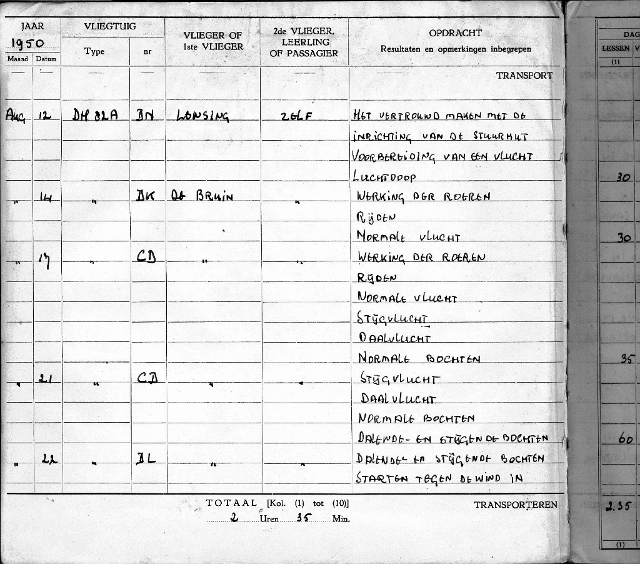 JAAR VLIEGTUIG VLIEGER OF 1ste VLIEGER 2de VLIEGER, LEERLING OF PASSAGIER OPDRACHT Resultaten en opmerkingen inbegrepen
1950
Maand Datum Type nr
TRANSPORT
Aug 12 DH 82A BN LENSING ZELF HET VERTROUWD MAKEN MET DE
INRICHTING VAN DE STUURHUT
VOORBEREIDING VAN EEN VLUCHT
LUCHTDOOP
„ 14 „ BK DE BRUIN „ WERKING DER ROEREN
RIJDEN
NORMALE VLUCHT
„ 17 „ CD „ „ WERKING DER ROEREN
RIJDEN
NORMALE VLUCHT
STIJGVLUCHT
DAALVLUCHT
NORMALE BOCHTEN
„ 21 „ CD „ „ STIJGVLUCHT
DAALVLUCHT
NORMALE BOCHTEN
DALENDE- EN STIJGENDE BOCHTEN
„ 22 „ BL „ „ DALENDE- EN STIJGENDE BOCHTEN
STARTEN TEGEN DE WIND IN
TOTAAL [Kol. (1) tot (10)] TRANSPORTEREN
2 Uren 35 Min.
DAG
LESSEN V
(1)
30
30
35
60
2.35
(1)